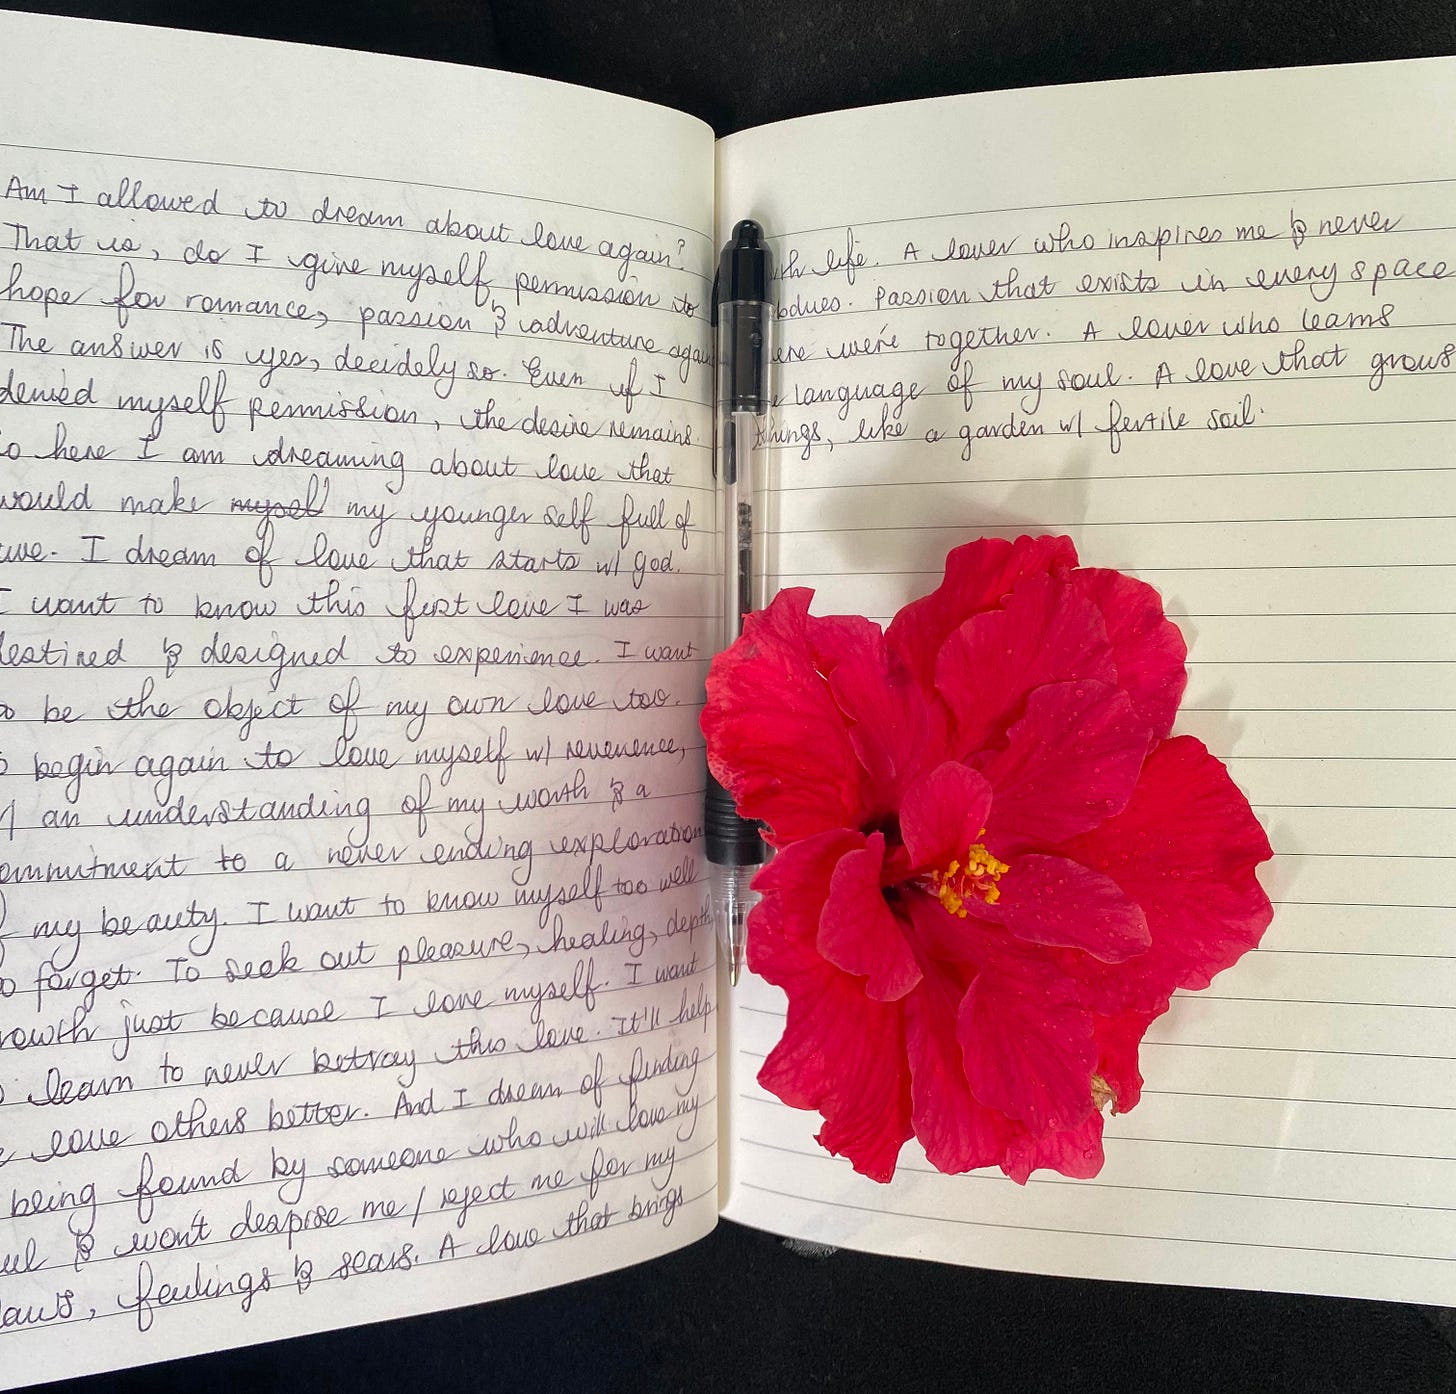 Am I allowed to dream about love again?
That is, do I give myself permission to
hope for romance, passion & adventure again
The answer is yes, decidely so. Even if I
denied myself permission, the desire remains.
so here I am dreaming about love that
would make myself my younger self full of
awe. I dream of love that starts w/ God.
I want to know this first love I was
destined & designed to experience. I want
to be the object of my own love too.
to begin again to love myself w/ reverence,
w/ an understanding of my worth & a
commitment to a never ending exploration
of my beauty. I want to know myself too well
to forget. To seek out pleasure, healing, depth
growth just because I love myself. I want
to learn to never betray this love. It'll help
me love others better. And I dream of finding
& being found by someone who will love my
soul & won't despise me / reject me for my
flaws, feelings & scars. A love that brings
forth life. A lover who inspires me & never
subdues. Passion that exists in every space
where we're together. A lover who learns
the language of my soul. A love that grows
things, like a garden w/ fertile soil.